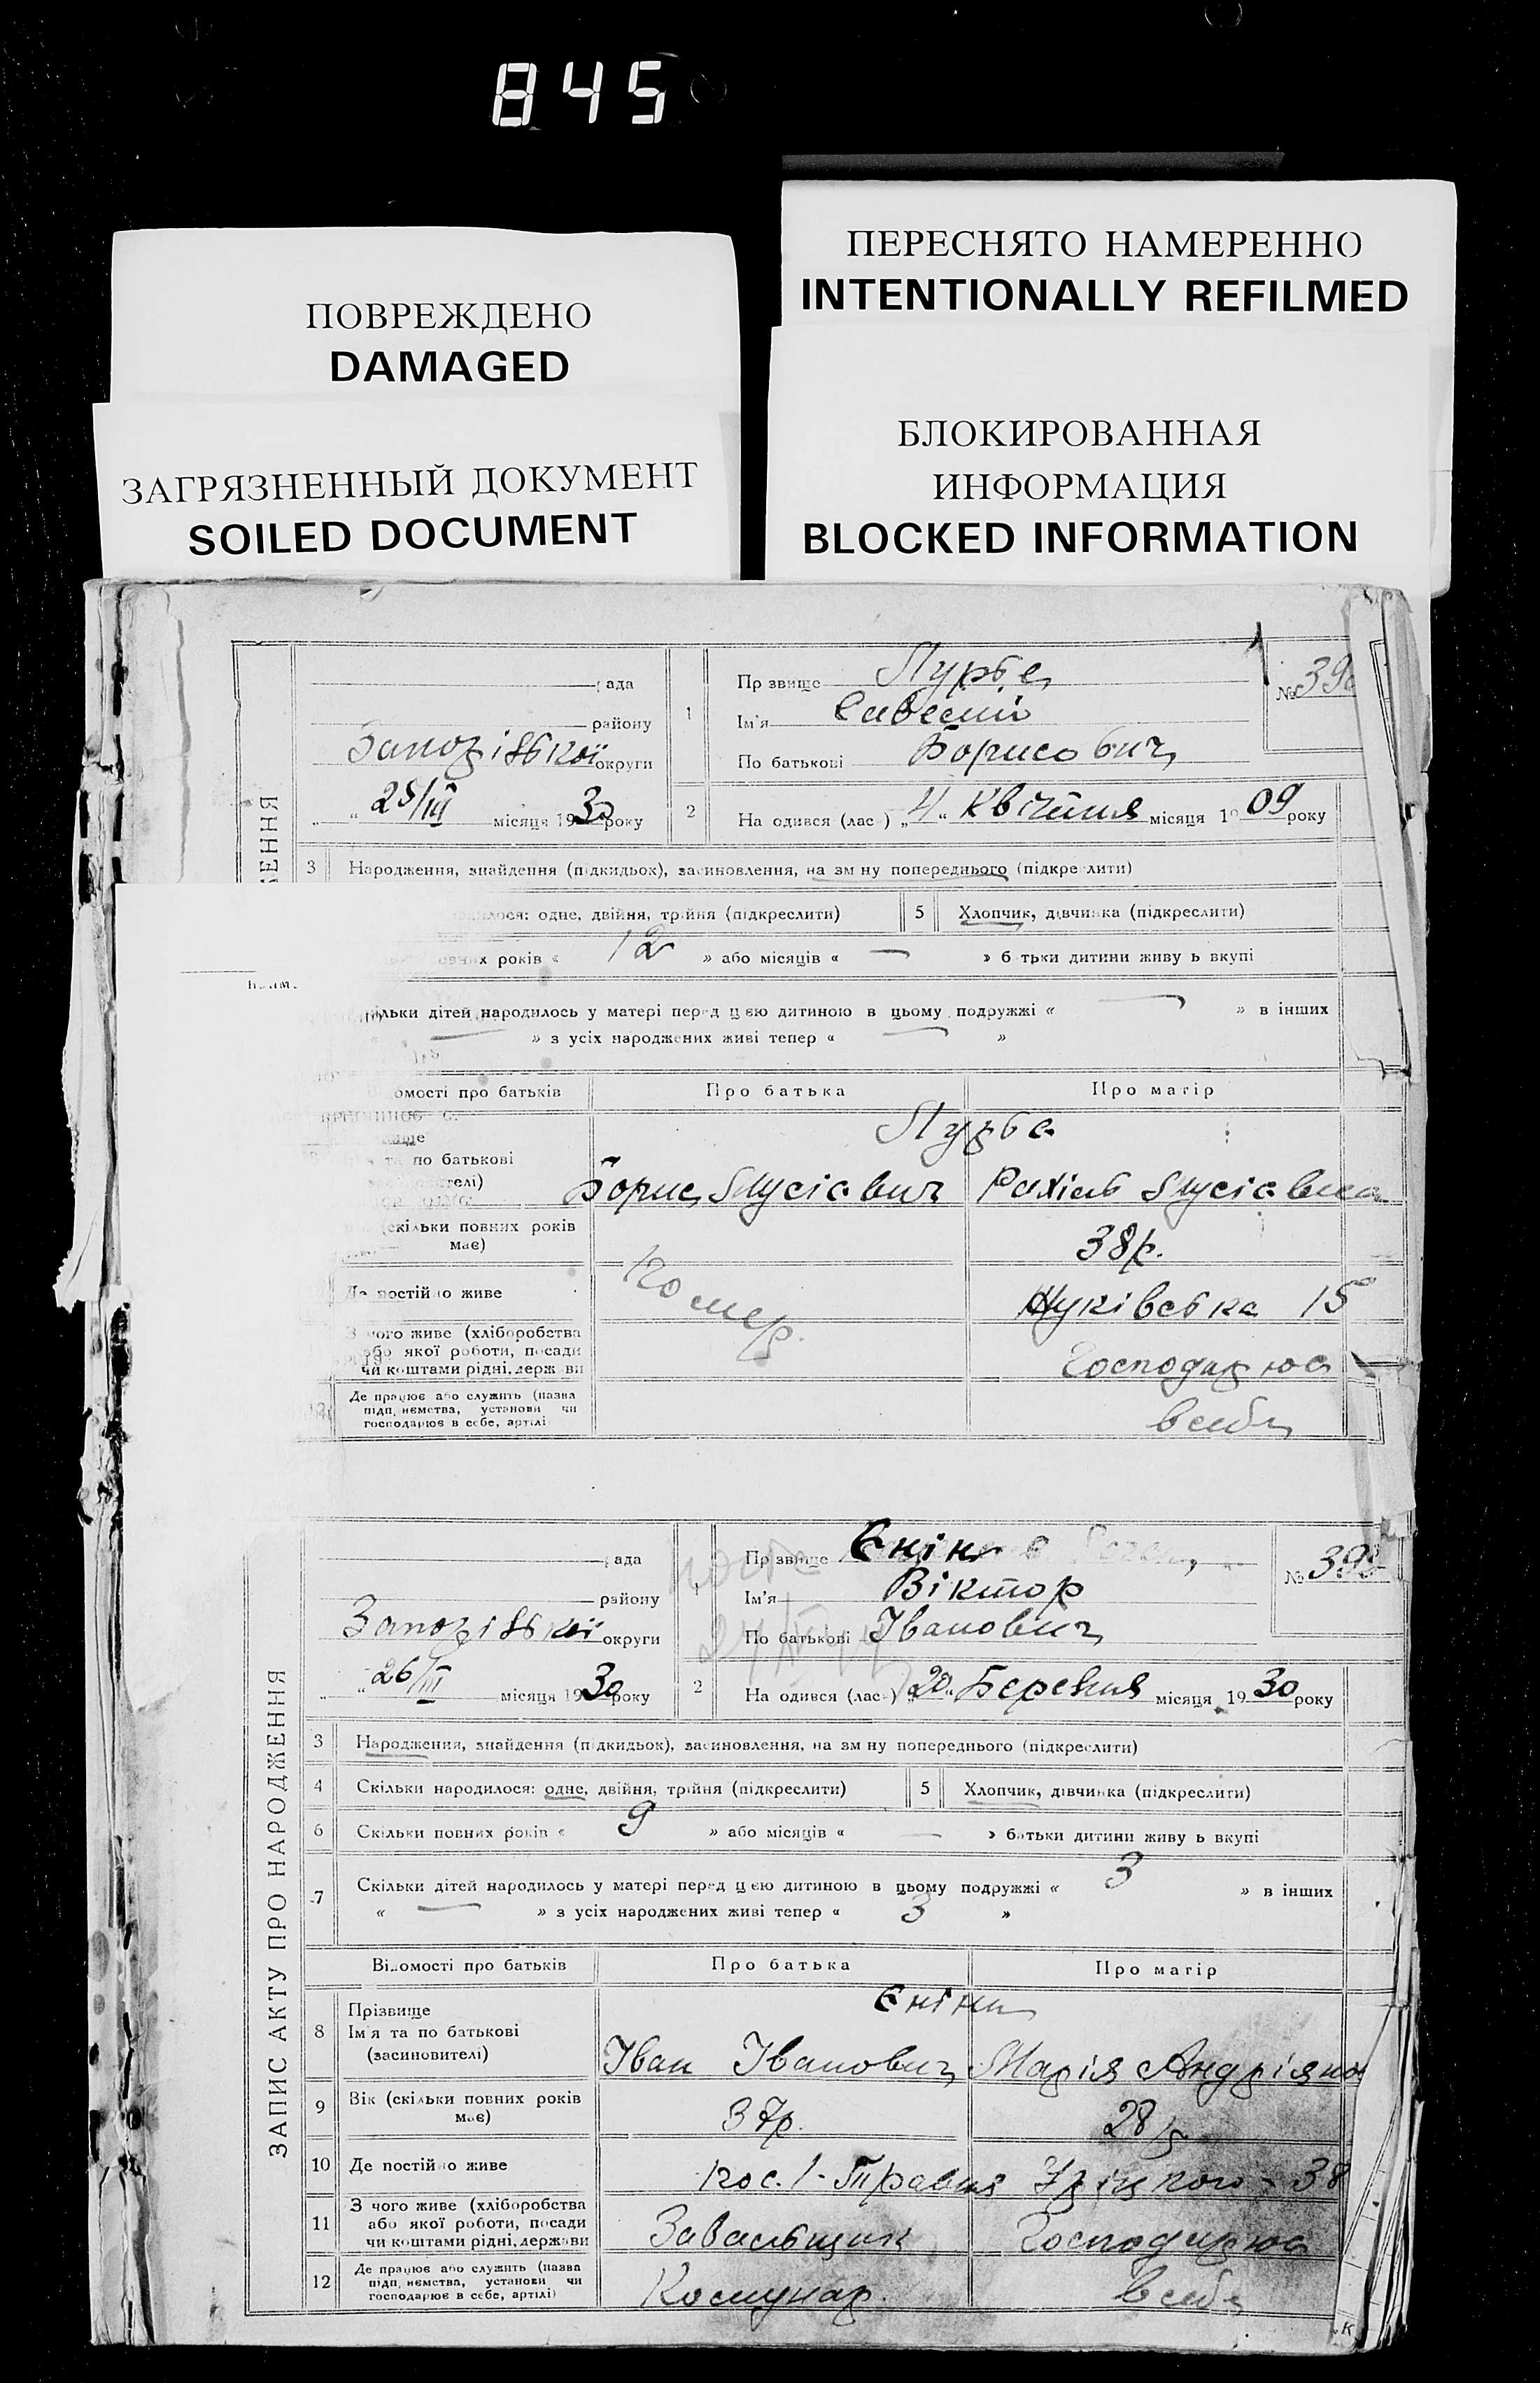 845
ПЕРЕСНЯТО НАМЕРЕННО
INTENTIONALLY REFILMED
ПОВРЕЖДЕНО
DAMAGED
БЛОКИРОВАННАЯ
ИНФОРМАЦИЯ
BLOCKED INFORMATION
ЗАГРЯЗНЕННЫЙ ДОКУМЕНТ
SOILED DOCUMENT
ада
району
округи
25/III місяця 1930 року
1
Пр звище Лурье
Ім'я
По батькові Борисович
№ 39
2 На одився (лас ) „4“ Квітня місяця 1909 року
3 Народження, знайдення (підкидьок), засиновлення, на зм ну попереднього (підкре лити)
одне, двійня, трійня (підкреслити)
5 Хлопчик, дівчинка (підкреслити)
років « 12 » або місяців « — » б тьки дитини живу ь вкупі
дітей народилось у матері перед цією дитиною в цьому подружжі « — » в інших
— » з усіх народжених живі тепер « — »
омості про батьків
Про батька
Про матір
Лурье
по батькові
Борис Мусієвич
Рахіль Мусієвна
(скільки повних років
має)
38р.
постійно живе
помер.
15
чого живе (хліборобства
або якої роботи, посади
чи коштами рідні, держ ви
Господарює
Де працює або служить (назва
підп. ємства, установи чи
господарює в себе, артілі
в себе
ЗАПИС АКТУ ПРО НАРОДЖЕННЯ
ада
району
округи
26/III місяця 1930 року
1
Пр звище
Ім'я Віктор
По батькові Іванович
№ 39
2 На одився (лас ) „20“ Березня місяця 1930 року
3 Народження, знайдення (підкидьок), засиновлення, на зм ну попереднього (підкреслити)
4 Скільки народилося: одне, двійня, трійня (підкреслити)
5 Хлопчик, дівчинка (підкреслити)
6 Скільки повних років « 9 » або місяців « — » батьки дитини живу ь вкупі
7 Скільки дітей народилось у матері перед цією дитиною в цьому подружжі « 3 » в інших
« — » з усіх народжених живі тепер « 3 »
Відомості про батьків
Про батька
Про матір
8 Прізвище
Ім'я та по батькові
(засиновителі)
Єніни
Іван Іванович
Марія Андріяна
9 Вік (скільки повних років
має)
37р.
28р
10 Де постійно живе
пос. 1-Травня
Уріцкого - 38
11 З чого живе (хліборобства
або якої роботи, посади
чи коштами рідні, держави
Завальщик
Господарює
12 Де працює або служить (назва
підп. ємства, установи чи
господарює в себе, артілі)
Комунар.
в себе